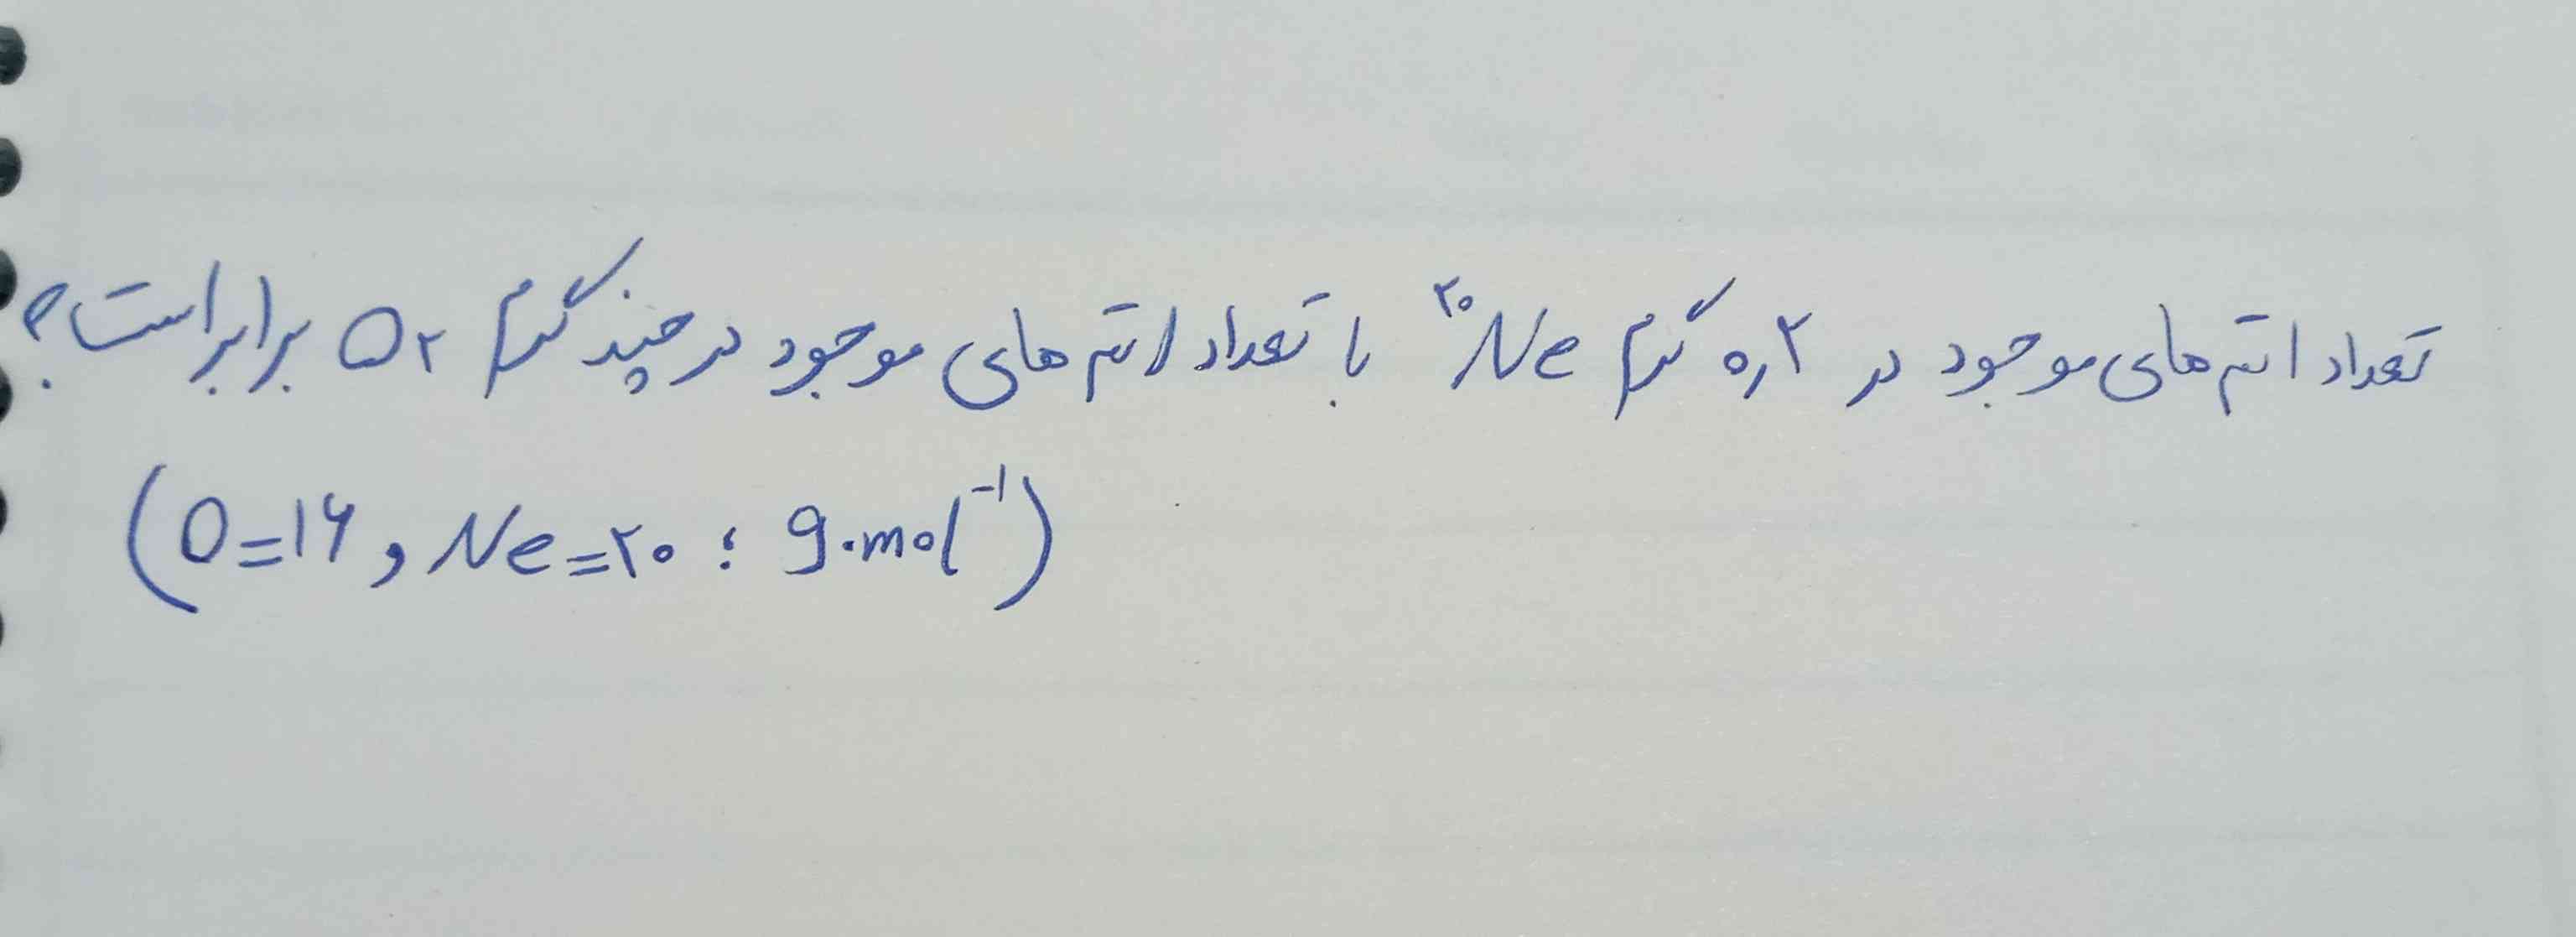 تعداد اتم‌های موجود در ۰٫۲ گرم ²⁰Ne با تعداد اتم‌های موجود در چند گرم O₂ برابر است؟
(O=۱۶ , Ne=۲۰ : g.mol⁻¹)